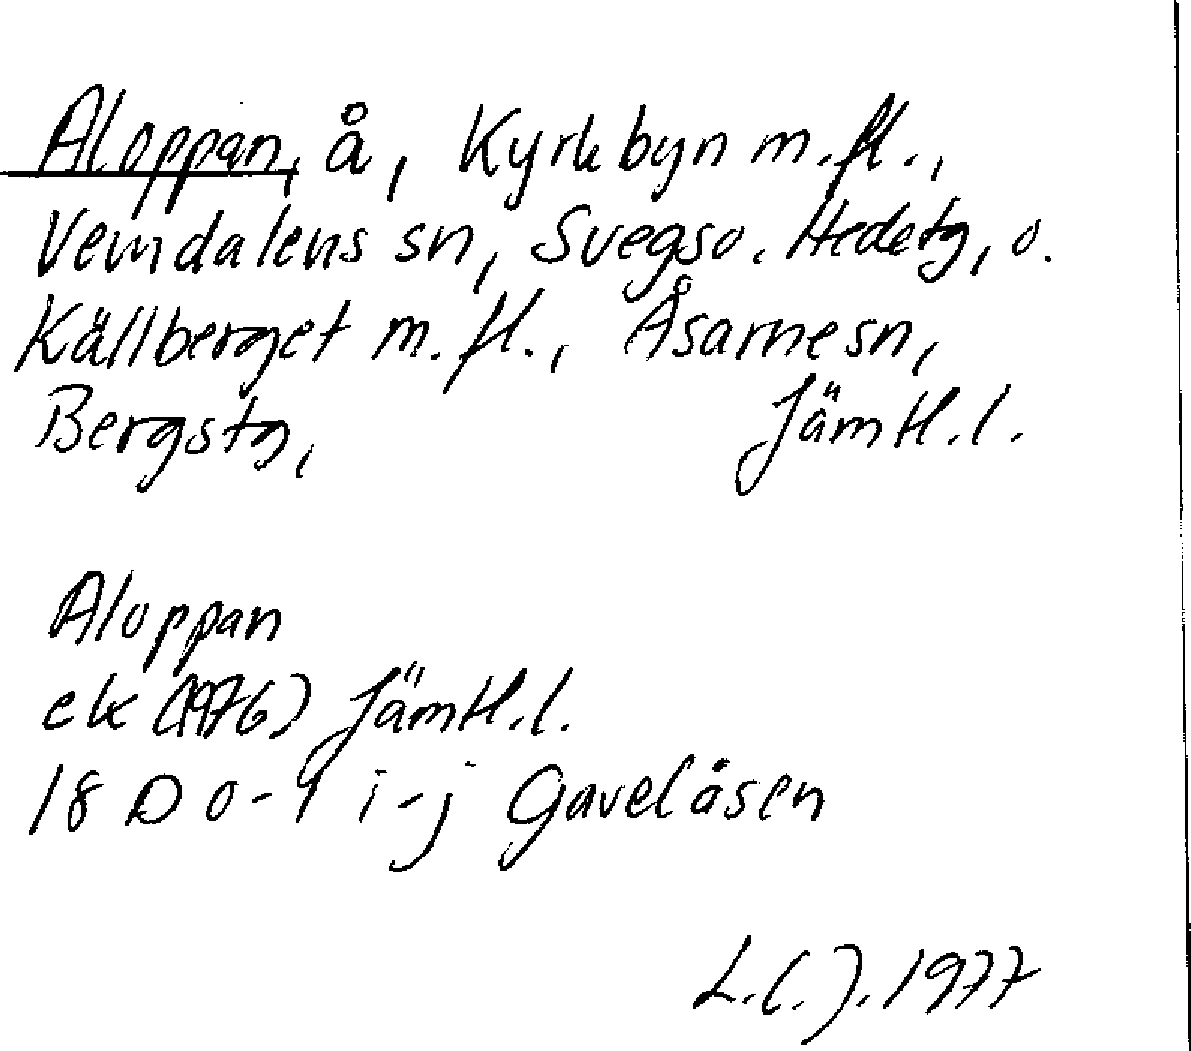 Aloppan, å, Kyrkbyn m.fl.,
Vemdalens sn, Svegs o. Hedetg, o.
Källberget m.fl., Åsarne sn,
Bergstg, Jämtl.l.
Aloppan
ek (1976) Jämtl.l.
18 D 0-9 i-j Gavelåsen
L.C.J. 1977